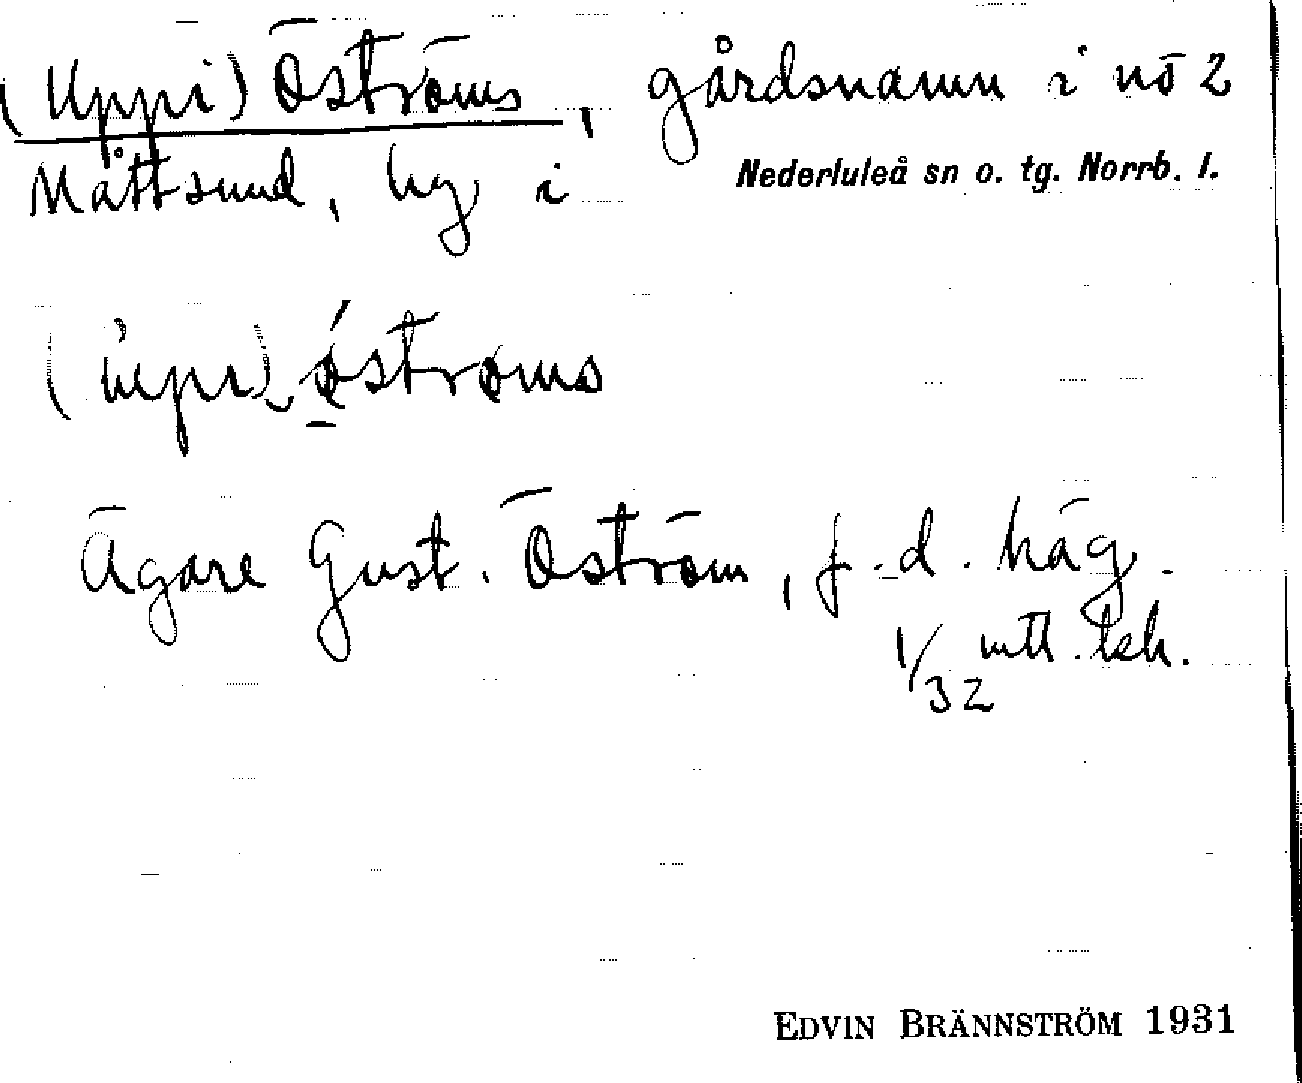 (Uppi) Öströms, gårdsnamn i nö 2
Måttsund, by i Nederluleå sn o. tg. Norrb. l.
Ägare Gust. Öström, f.d. häg.
1/32 mtl. lsk.
EDVIN BRÄNNSTRÖM 1931